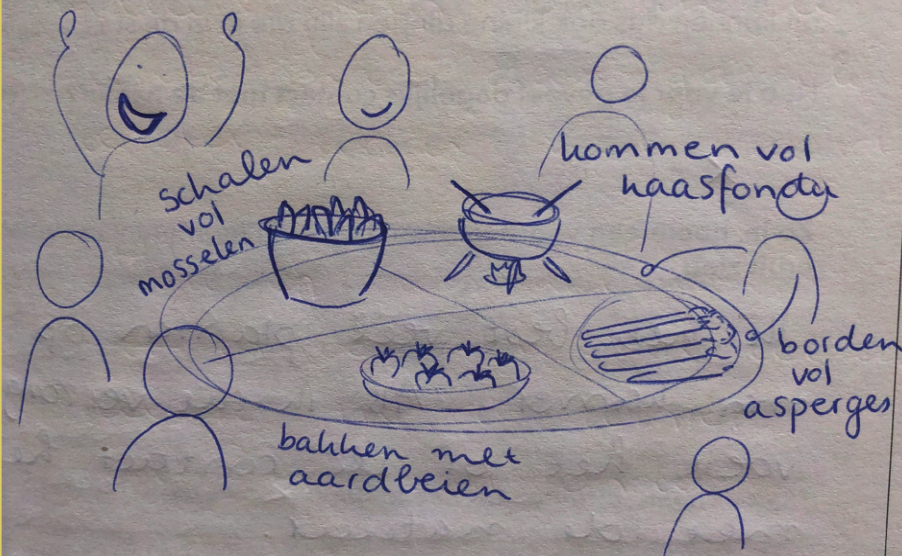 schalen
vol
mosselen
kommen vol
kaasfondu
borden
vol
asperges
bakken met
aardbeien